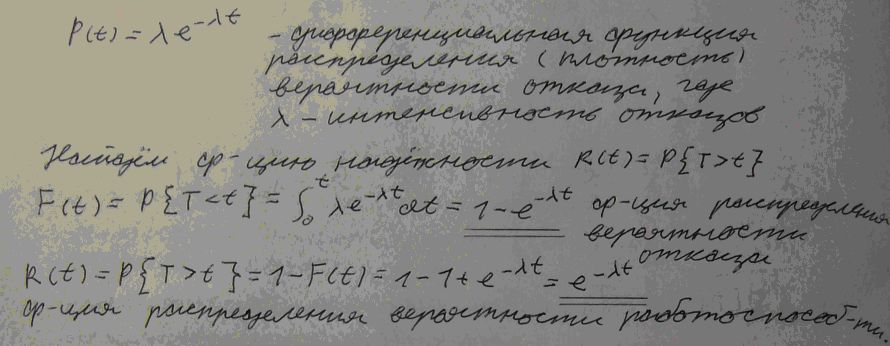 P(t) = λe^{-λt} - дифференциальная функция
распределения (плотность)
вероятности отказа, где
λ - интенсивность отказов
Найдём ф-цию надёжности R(t) = P{T>t}
F(t) = P{T<t} = ∫_0^t λe^{-λt}dt = 1-e^{-λt} ф-ция распределения
вероятности
отказа
R(t) = P{T>t} = 1-F(t) = 1-1+e^{-λt} = e^{-λt}
ф-ция распределения вероятности работоспособ-ти.